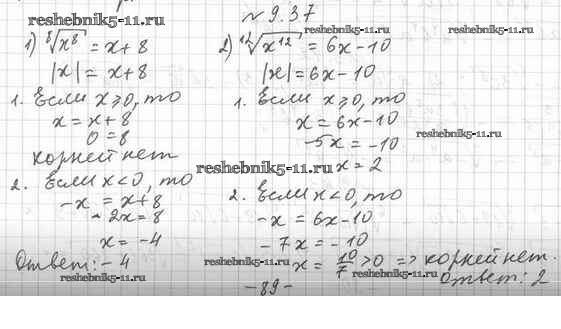 № 9.37
reshebnik5-11.ru
reshebnik5-11.ru
1) ⁸√x⁸ = x + 8
|x| = x + 8
1. Если x ⩾ 0, то
x = x + 8
0 = 8
корней нет
2. Если x < 0, то
-x = x + 8
-2x = 8
x = -4
Ответ: -4
reshebnik5-11.ru
2) ¹²√x¹² = 6x - 10
|x| = 6x - 10
1. Если x ⩾ 0, то
x = 6x - 10
reshebnik5-11.ru
-5x = -10
x = 2
reshebnik5-11.ru
2. Если x < 0, то
-x = 6x - 10
-7x = -10
x = 10/7 > 0 => корней нет.
reshebnik5-11.ru
reshebnik5-11.ru
Ответ: 2
- 89 -